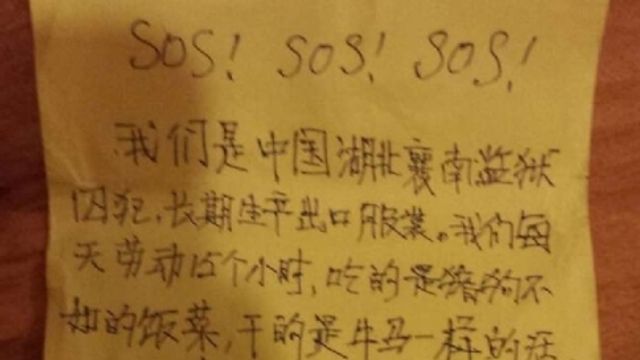 SOS! SOS! SOS!
我们是中国湖北襄南监狱
囚犯,长期生产出口服装。我们每
天劳动15个小时,吃的是猪狗不
如的饭菜,干的是牛马一样的